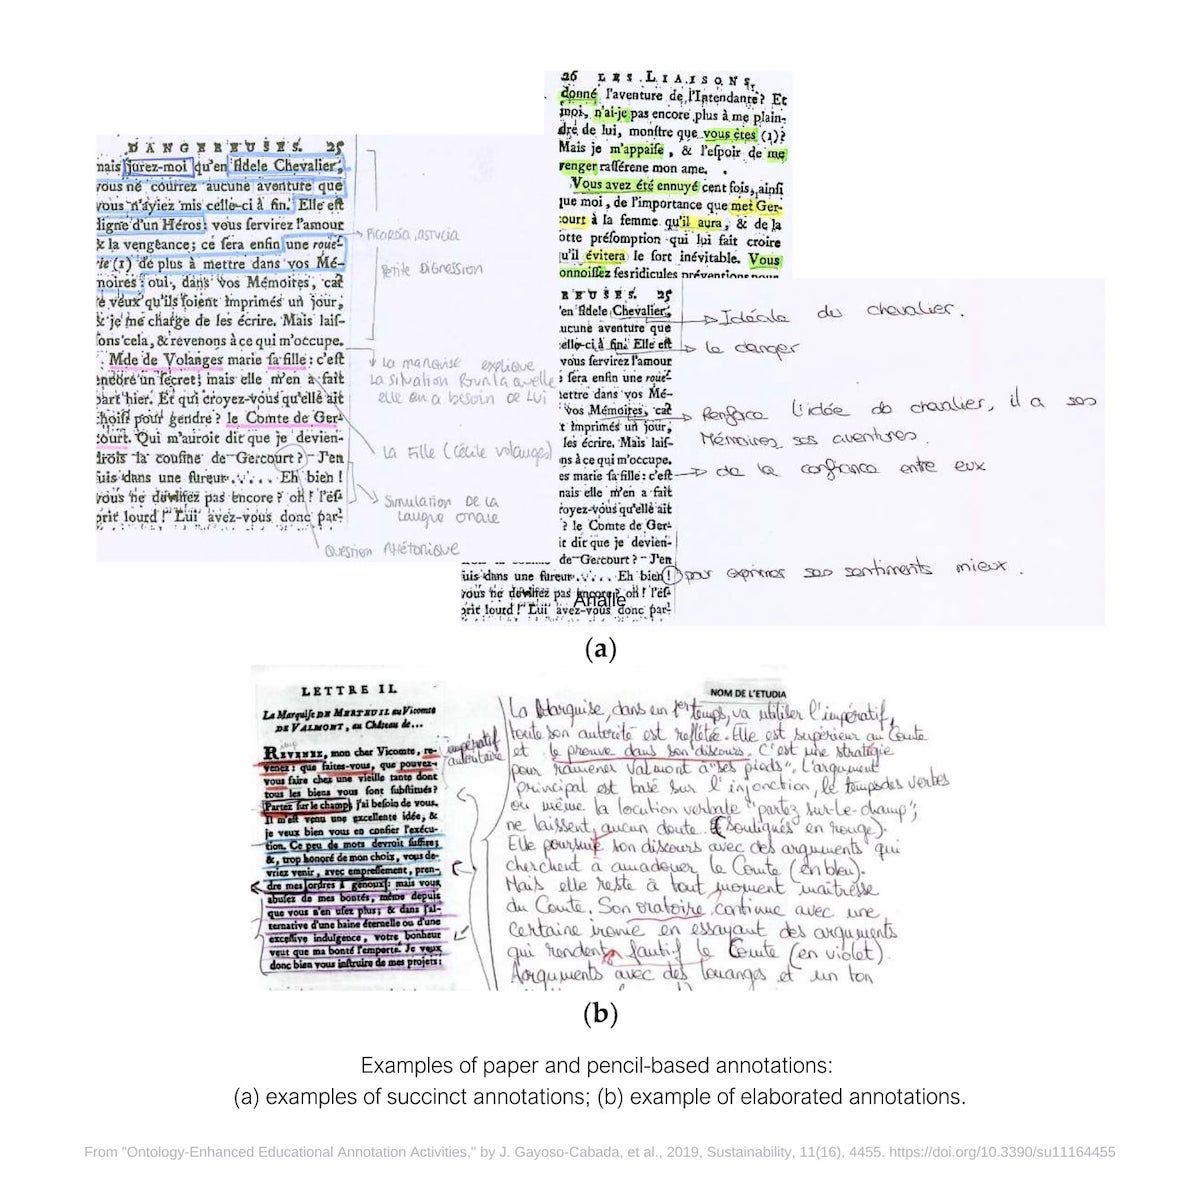 26 LES LIAISONS,
donné l'aventure de l'Intendante? Et
moi, n'ai-je pas encore plus à me plain-
dre de lui, monſtre que vous êtes (1)?
Mais je m'appaiſe, & l'eſpoir de me
venger raſſérene mon ame.
Vous avez été ennuyé cent fois, ainſi
que moi, de l'importance que met Ger-
court à la femme qu'il aura, & de la
otte préſomption qui lui fait croire
qu'il évitera le ſort inévitable. Vous
onnoiſſez ſes ridicules préventions pour
DANGEREUSES. 25
mais jurez-moi qu'en fidele Chevalier,
vous ne courrez aucune aventure que
vous n'ayiez mis celle-ci à fin. Elle eſt
digne d'un Héros: vous ſervirez l'amour
& la vengeance; ce ſera enfin une roue-
rie (1) de plus à mettre dans vos Mé-
moires: oui, dans vos Mémoires, car
je veux qu'ils ſoient imprimés un jour,
& je me charge de les écrire. Mais laiſ-
ſons cela, & revenons à ce qui m'occupe.
Mde de Volanges marie ſa fille: c'eſt
encore un ſecret; mais elle m'en a fait
part hier. Et qui croyez-vous qu'elle ait
choiſi pour gendre? le Comte de Ger-
court. Qui m'auroit dit que je devien-
drois la couſine de Gercourt? J'en
ſuis dans une fureur..... Eh bien!
vous ne devinez pas encore? oh! l'eſ-
prit lourd! Lui avez-vous donc par-
Picardía, astucia
Petite Digression
La marquise explique
La situation Pour laquelle
elle en a besoin de Lui
La Fille (Cécile Volanges)
Simulation De La
Langue orale
Question rhétorique
REUSES. 25
'en fidele Chevalier,
ucune aventure que
elle-ci à fin. Elle eſt
vous ſervirez l'amour
e ſera enfin une roue-
ettre dans vos Mé-
vos Mémoires, car
t imprimés un jour,
les écrire. Mais laiſ-
ns à ce qui m'occupe.
es marie ſa fille: c'eſt
mais elle m'en a fait
royez-vous qu'elle ait
? le Comte de Ger-
it dit que je devien-
de Gercourt? J'en
uis dans une fureur..... Eh bien!
vous ne devinez pas encore? oh! l'eſ-
prit lourd! Lui avez-vous donc par-
Idéale du chevalier.
le danger
Renforce l'idée do chevalier, il a ses
Mémoires ses aventures.
de la confiance entre eux
pour exprimer ses sentiments mieux.
Analle
(a)
LETTRE II.
La Marquiſe DE MERTEUIL au Vicomte
DE VALMONT, au Château de...
REVENEZ, mon cher Vicomte, re-
venez: que faites-vous, que pouvez-
vous faire chez une vieille tante dont
tous les biens vous ſont ſubſtitués?
Partez ſur le champ; j'ai beſoin de vous.
Il m'eſt venu une excellente idée, &
je veux bien vous en confier l'exécu-
tion. Ce peu de mots devroit ſuffire;
&, trop honoré de mon choix, vous de-
vriez venir, avec empreſſement, pren-
dre mes ordres à genoux: mais vous
abuſez de mes bontés, même depuis
que vous n'en uſez plus; & dans l'al-
ternative d'une haine éternelle ou d'une
exceſſive indulgence, votre bonheur
veut que ma bonté l'emporte. Je veux
donc bien vous inſtruire de mes projets:
impératif
autoritaire
NOM DE L'ETUDIA
La Marquise, dans en 1er temps, va utiliser l'impératif,
toute son autorité est reflétée. Elle est supérieur au Comte
et le prouve dans son discours. C'est une stratégie
pour ramener Valmont à "ses pieds". L'argument
principal est basé sur l'injonction, le temps des verbes
ou même la locution verbale "partez sur-le-champ",
ne laissent aucun doute (Souliqués en rouge).
Elle poursuive son discours avec des arguments qui
cherchent à amadouer le Comte (en bleu).
Mais elle reste à tout moment maîtresse
du Comte. Son oratoire continue avec une
certaine ironie en essayant des arguments
qui rendent fautif le Comte (en violet).
Arguments avec des louanges et un ton
(b)
Examples of paper and pencil-based annotations:
(a) examples of succinct annotations; (b) example of elaborated annotations.
From "Ontology-Enhanced Educational Annotation Activities," by J. Gayoso-Cabada, et al., 2019, Sustainability, 11(16), 4455. https://doi.org/10.3390/su11164455